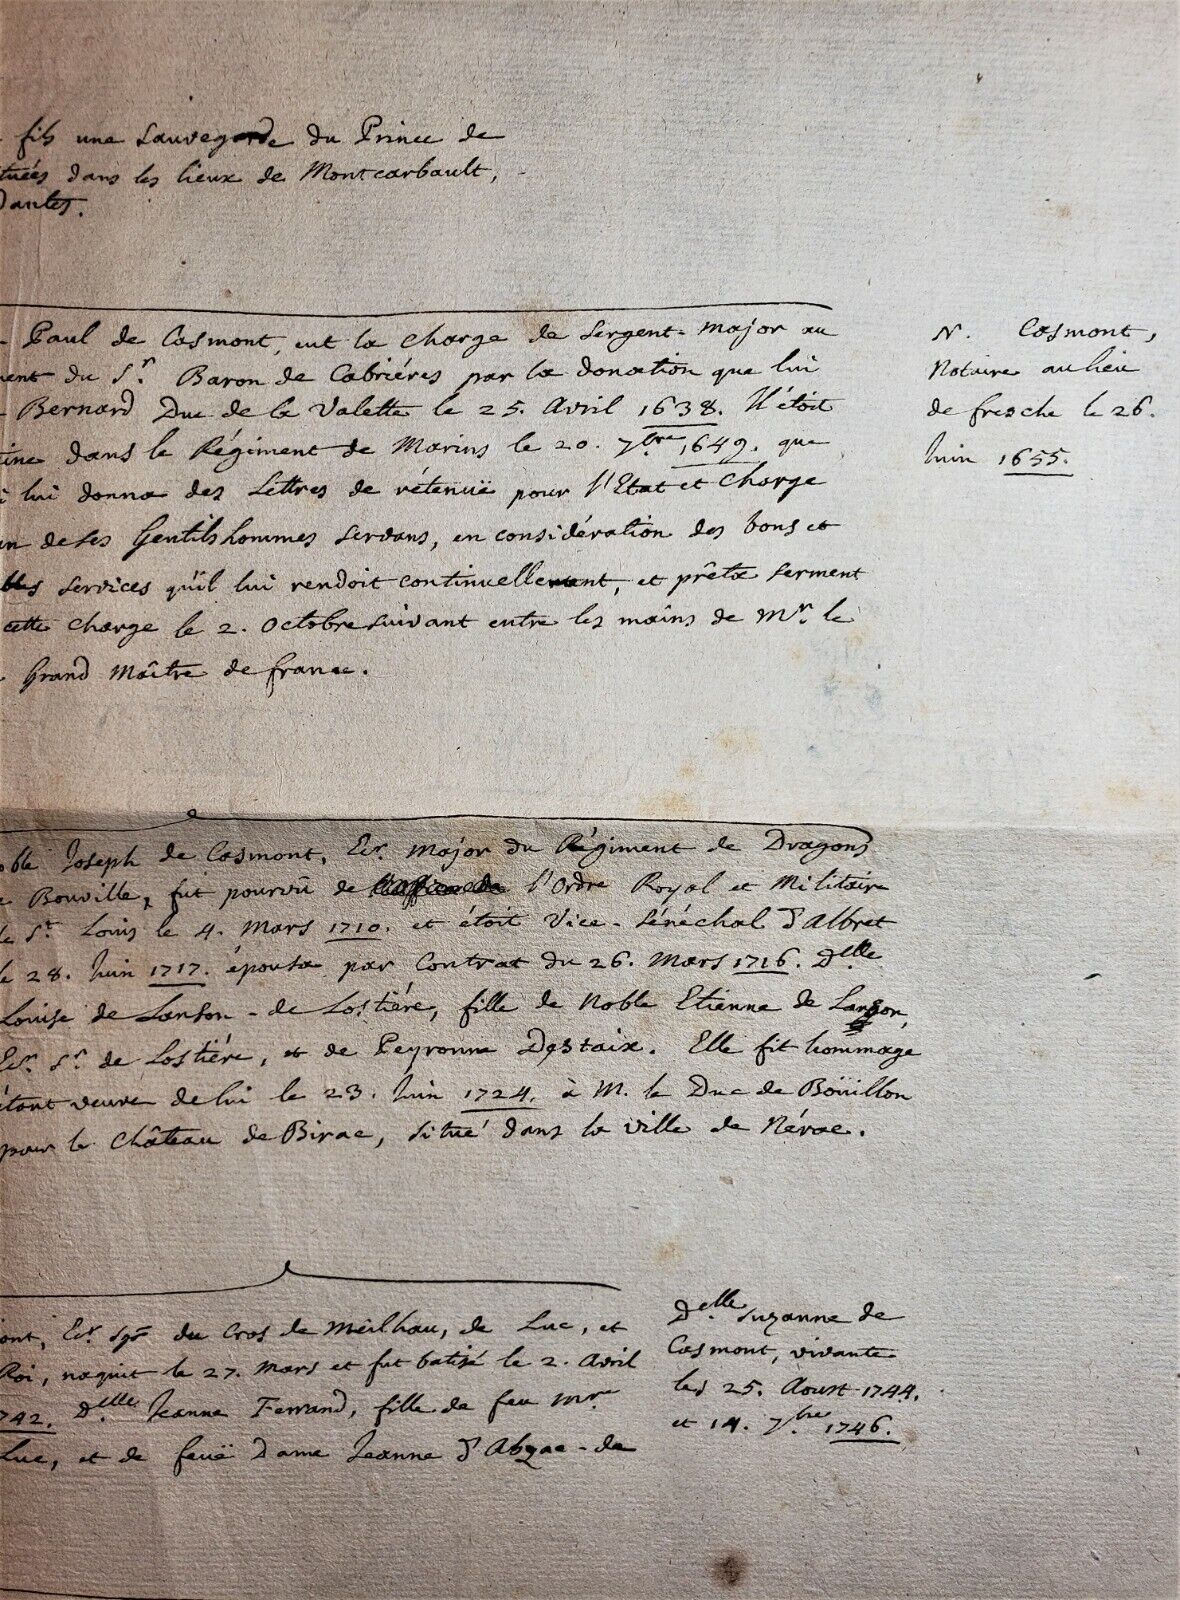 fils une Sauvegarde du Prince de
tuées dans les lieux de Montcarbault,
dantes.
Paul de Casmont, eut la charge de Sergent-Major au
ment du Sr. Baron de Cabriéres par la donation que lui
Bernard Duc de la Valette le 25. Avril 1638. Il étoit
ine dans le Régiment de Marins le 20. 7bre 1649. que
i lui donna des Lettres de rétenuë pour l'Etat et Charge
un de ses Gentilshommes servans, en considération des bons et
bles services qu'il lui rendoit continuellement, et prêta serment
cette charge le 2. Octobre suivant entre les mains de Mr. le
Grand Maître de france.
N. Casmont,
Notaire au lieu
de fresche le 26.
Juin 1655.
oble Joseph de Casmont, Ecr. Major du Régiment de Dragons
e Bouville, fut pourvû de l'Ordre Royal et Militaire
de St. Louis le 4. Mars 1710. et étoit Vice-Sénéchal d'Albret
le 28. Juin 1717. épousa par Contrat du 26. Mars 1716. Delle
Louise de Lanson-de Lostiére, fille de Noble Etienne de
Ecr. Sr. de Lostiére, et de Peyronne Destaix. Elle fit hommage
étant veuve de lui le 23. Juin 1724. à M. le Duc de Boüillon
pour le Château de Birac, situé dans la ville de Nérac.
ont, Ecr. Sgr. du Cros de Meilhau, de Luc, et
Roi, naquit le 27. Mars et fut batisé le 2. Avril
742. Delle Jeanne Ferrand, fille de feu Mre
Luc, et de feuë Dame Jeanne d'Abzac-de
Delle Suzanne de
Casmont, vivante
les 25. Aoust 1744.
et 14. 7bre 1746.